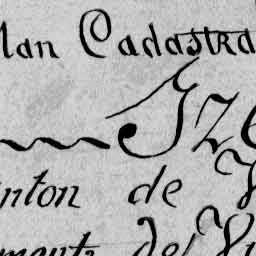 lan Cadastra
IZE
nton de V
ment de V